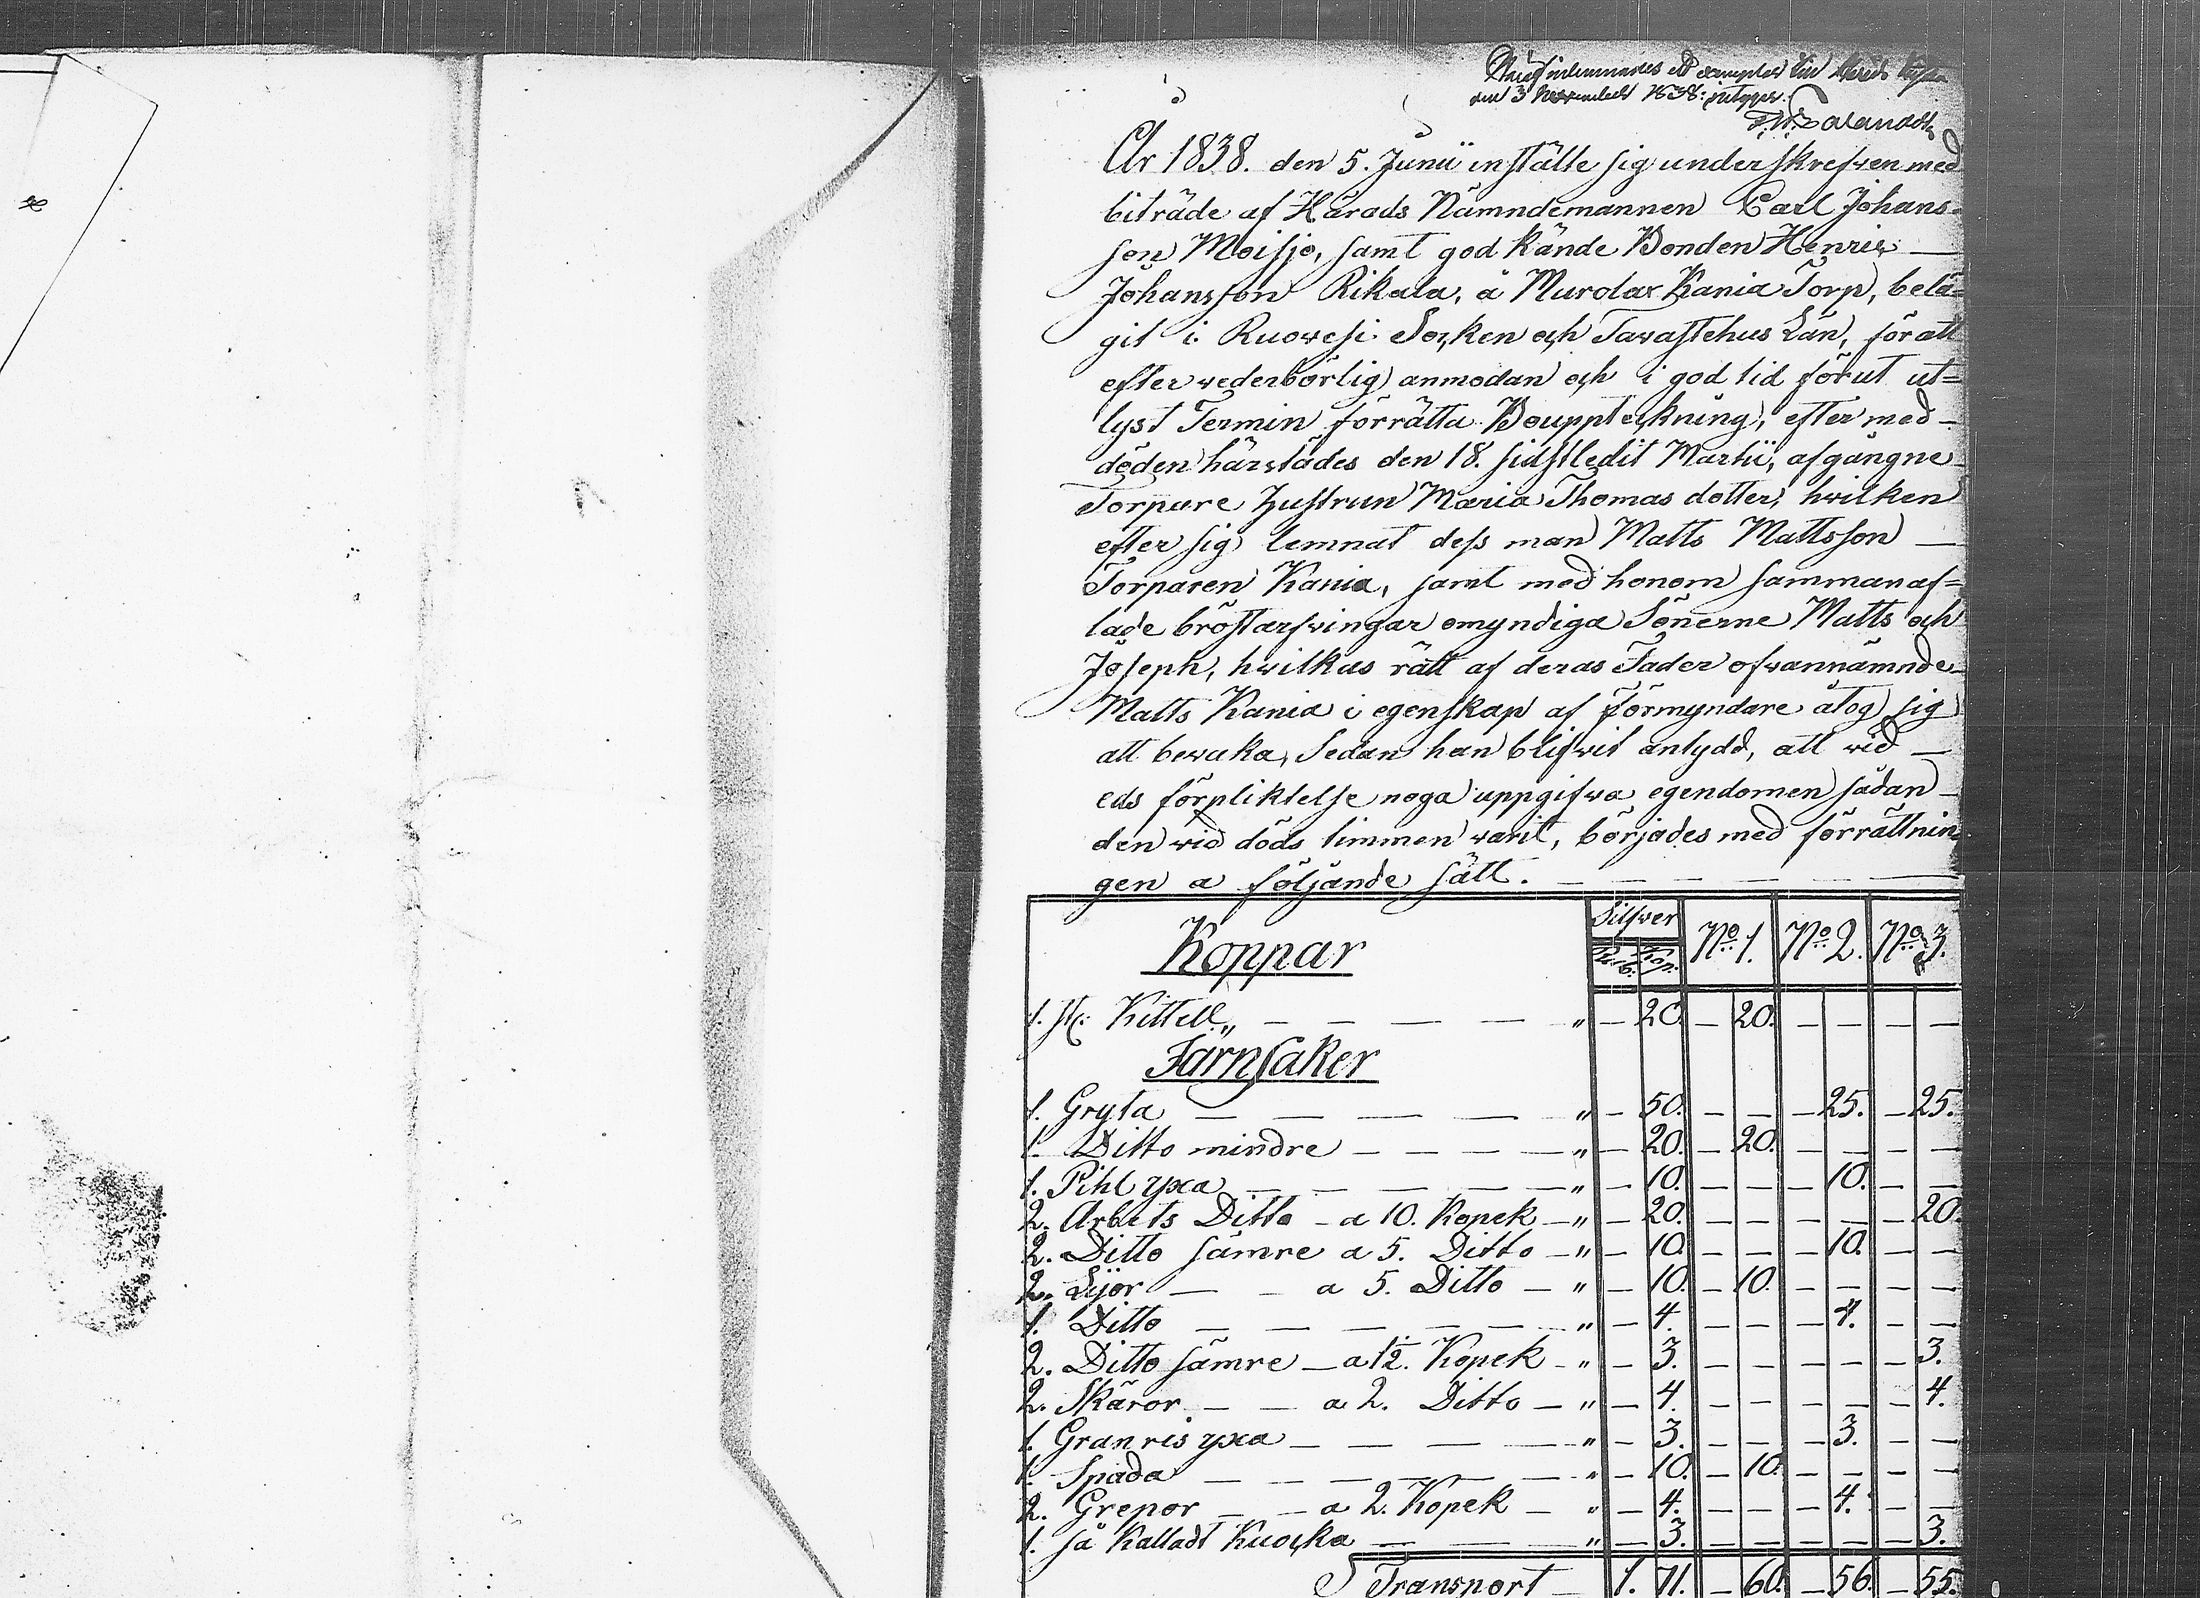 inlemnades ett exemplar
den 3 November 1838: intygar.
År 1838. den 5. Junii instälte sig underskrefwen med
biträde af Härads Nämndemannen Carl Johans-
son Moisjo, samt god kände Bonden Henric —
Johansson Rikala, å Murolax Kania Torp, belä-
git i Ruowesi Socken och Tawastehus Län, för att
efter wederbörlig anmodan och i god tid förut ut=
lyst Termin förrätta Bouppteckning, efter med —
döden härstädes den 18. sidstledit Martii, afgångne
Torpare Hustrun Maria Thomas dotter, hwilken
efter sig lemnat dess man Matts Mattsson —
Torparen Kania, samt med honom samman af=
lade bröstarfwingar omyndiga Sönerne Matts och
Joseph, hwilkas rätt af deras Fader ofwannämnde
Matts Kania i egenskap af Förmyndare åtog sig
att bewaka, Sedan han blifwit antydd, att wid —
eds förpliktelse noga uppgifwa egendomen sådan —
den wid döds timmen warit, börjades med förrättnin-
gen å följande sätt. — — — — —
Silfwer
Koppar Rub. Kop. No 1. No 2. No 3.
1. st: Kittell „ — — — — — „ — 20. — 20. — — — —
Järnsaker
1. Gryta — — — — „ — 50. — — — 25. — 25.
1. Ditto mindre — — — — „ — 20. — 20. — — — —
1. Pihl yxa — — — — — „ — 10. — — — 10. — —
2. Arbets Ditto — a 10. Kopek — „ — 20. — — — — — 20.
2. Ditto sämre a 5. Ditto — „ — 10. — — — 10. — —
2. Lijor — — a 5. Ditto — „ — 10. — 10. — — — —
1. Ditto — — — — — — „ — 4. — — — 4. — —
2. Ditto sämre — a 1½. Kopek — „ — 3. — — — — — 3.
2. Skäror — — a 2. Ditto — „ — 4. — — — — — 4.
1. Granris yxa — — — — „ — 3. — — — 3. — —
1. Spada — — — — — — „ — 10. — 10. — — — —
2. Grepor — — a 2. Kopek — „ — 4. — — — 4. — —
1. så Kalladt Kuocka — — — „ — 3. — — — — — 3.
Transport — 1. 71. — 60. — 56. — 55.